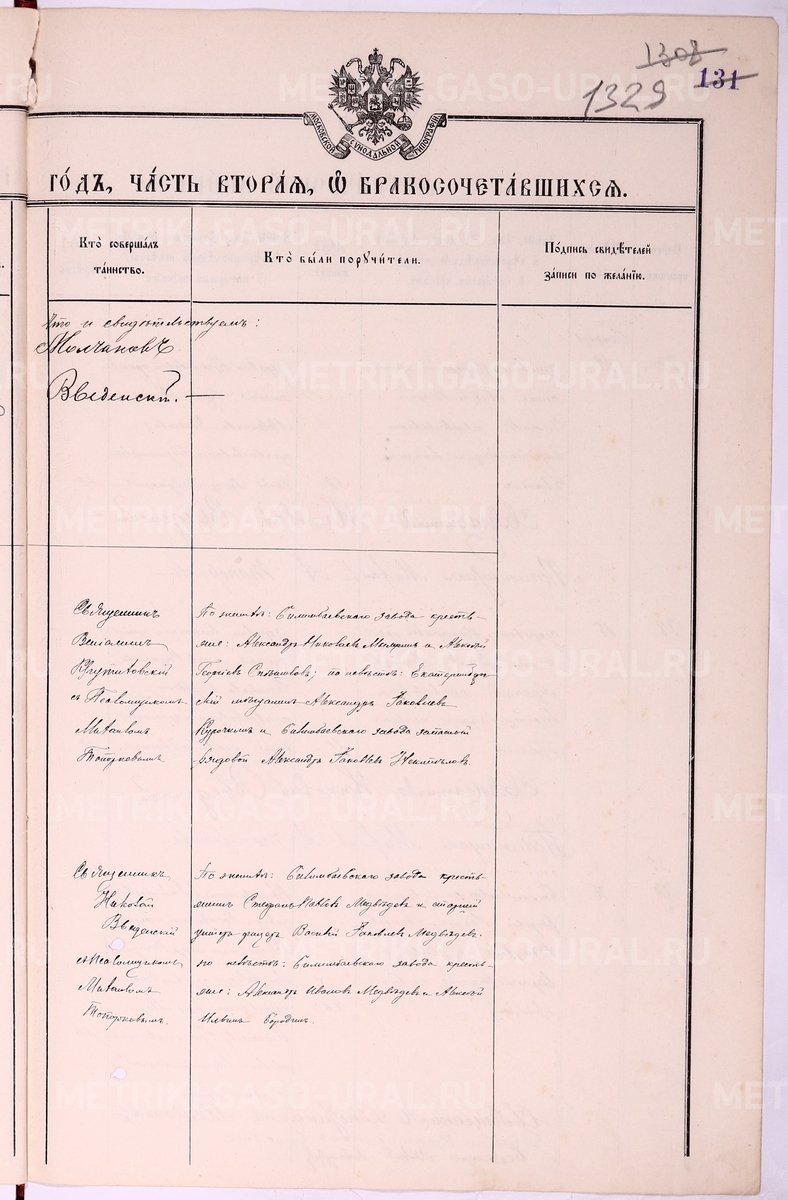 1308
131
1329
МОСКОВСКОЙ СѴНОДАЛЬНОЙ ТИПОГРАФІИ
ГО́ДЪ, ЧА́СТЬ ВТОРА́Ѧ, Ѽ БРАКОСОЧЕТА́ВШИХСѦ.
Кто̀ соверша́лъ
та́инство.
Кто̀ бы́ли порꙋчи́тели.
По́дпись свидѣ́телей
за́писи по жела́нїю.
Что и свидѣтельствуемъ:
Молчановъ
Введенскій.
Священникъ
Веніаминъ
Крутиховскій
съ Псаломщикомъ
Михаиломъ
Топорковымъ
По женихѣ: Билимбаевскаго завода крестья-
не: Александръ Николаевъ и Алексѣй
Георгіевъ; по невѣстѣ: Екатеринбург-
скій мѣщанинъ Александръ Яковлевъ
Курочкинъ и Билимбаевскаго завода запасный
рядовой Александръ Яковлевъ
Священникъ
Николай
Введенскій
съ Псаломщикомъ
Михаиломъ
Топорковымъ.
По женихѣ: Билимбаевскаго завода кресть-
янинъ Стефанъ Медвѣдевъ и старшій
унтеръ-офицеръ Василій Яковлевъ Медвѣдевъ.
по невѣстѣ: Билимбаевскаго завода крестья-
не: Александръ Ивановъ Медвѣдевъ и Алексѣй
Ильинъ Бородинъ.
METRIKI.GASO-URAL.RU